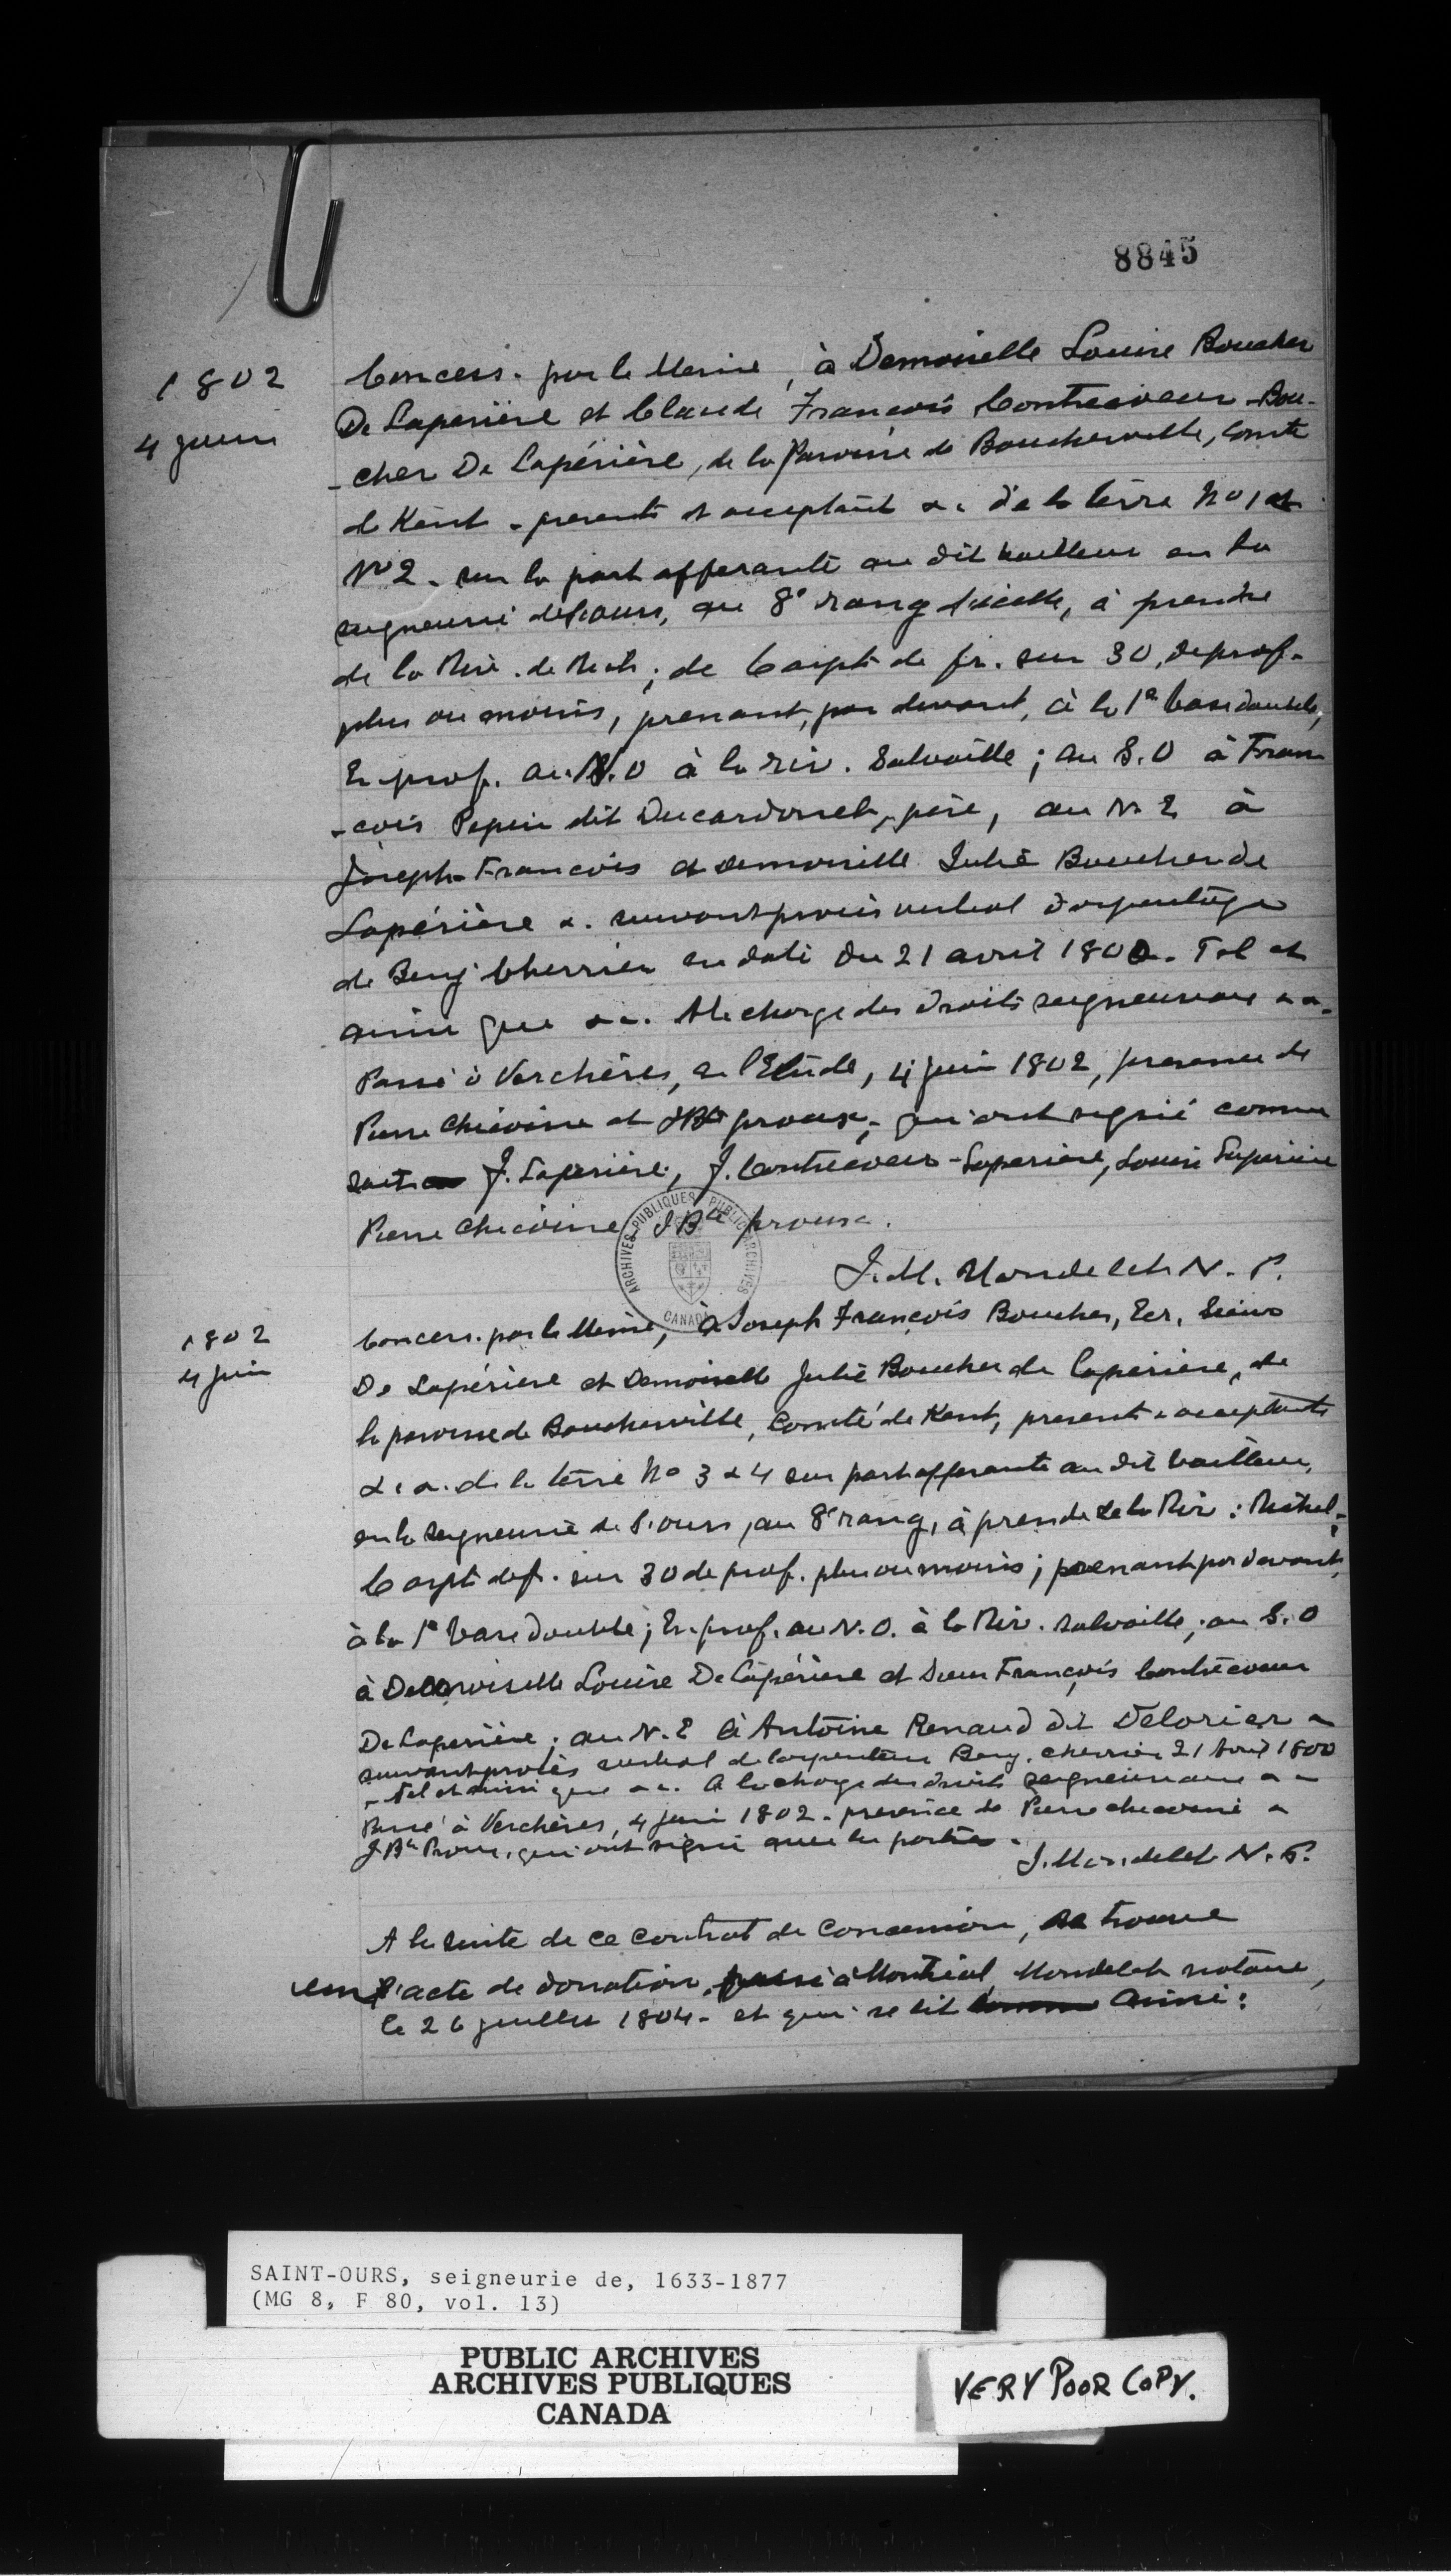 8845
1802
4 juin
Concess. par le Meme, à Demoiselle Louise Boucher
De Laperière et Claude François Contrecoeur-Bou-
-cher De Lapérière, de la Paroisse de Boucherville, Comté
de Kent - presents et acceptant &c de la terre No 1 et
No 2 - sur la part afferante au dit bailleur en la
seigneurie de St ours, au 8e rang d'icelle, à prendre
de la Riv. de Rich; de 6 arpts de fr. sur 30, de prof.
plus ou moins, prenant, par devant, à la 1e base double,
En prof. au N.O à la riv. Salvaille; au S.O à Fran
-cois Pepin dit Ducardonet, père, au N. E à
Joseph-François et demoiselle Julie Boucher de
Lapérière &. suivant procès verbal d'arpentage
de Benj Cherrier en date du 21 avril 1800. Tel et
ainsi que &c. A la charge des droits seigneuriaux &a.
Passé à Verchères, en l'Etude, 4 juin 1802, presence de
Pierre Chicoine et JBte proux, qui ont signé comme
suit J. Laperière, J. Contrecoeur-Laperiere, Louise Laperiere
Pierre Chicoine, J Bte proux.
J. M. Mondelet N. P.
ARCHIVES PUBLIQUES PUBLIC ARCHIVES
CANADA
1802
4 juin
Concess. par le Meme, à Joseph François Boucher, Ecr, Sieur
De Lapérière et Demoiselle Julie Boucher de Laperiere, de
la paroisse de Boucherville, Comté de Kent, presents & acceptants
&c a. de la terre No 3 & 4 sur part afferante au dit bailleur,
en la seigneurie de St. ours, au 8e rang, à prendre de la Riv: Richel-
6 arpts de f. sur 30 de prof. plus ou moins; prenant par devant,
à la 1e base double; En prof. au N.O. à la Riv. Salvaille; au S.O
à Demoiselle Louise De Lapérière et Sieur François Contrecoeur
De Laperière; au N.E à Antoine Renaud dit Delorier &
suivant procès verbal de l'arpenteur Benj. Cherrier 21 Avril 1800
- Tel et ainsi que &c. A la charge des droits seigneuriaux &a
Passé à Verchères, 4 juin 1802 - presence de Pierre chicoine &
J Bte Proux, qui ont signé avec les parties.
J. Mondelet N. P.
A la suite de ce contrat de Concession, se trouve
un acte de donation, passé à Montréal, Mondelet notaire,
le 26 juillet 1804 - et qui se lit ainsi:
SAINT-OURS, seigneurie de, 1633-1877
(MG 8, F 80, vol. 13)
PUBLIC ARCHIVES
ARCHIVES PUBLIQUES
CANADA
VERY POOR COPY.